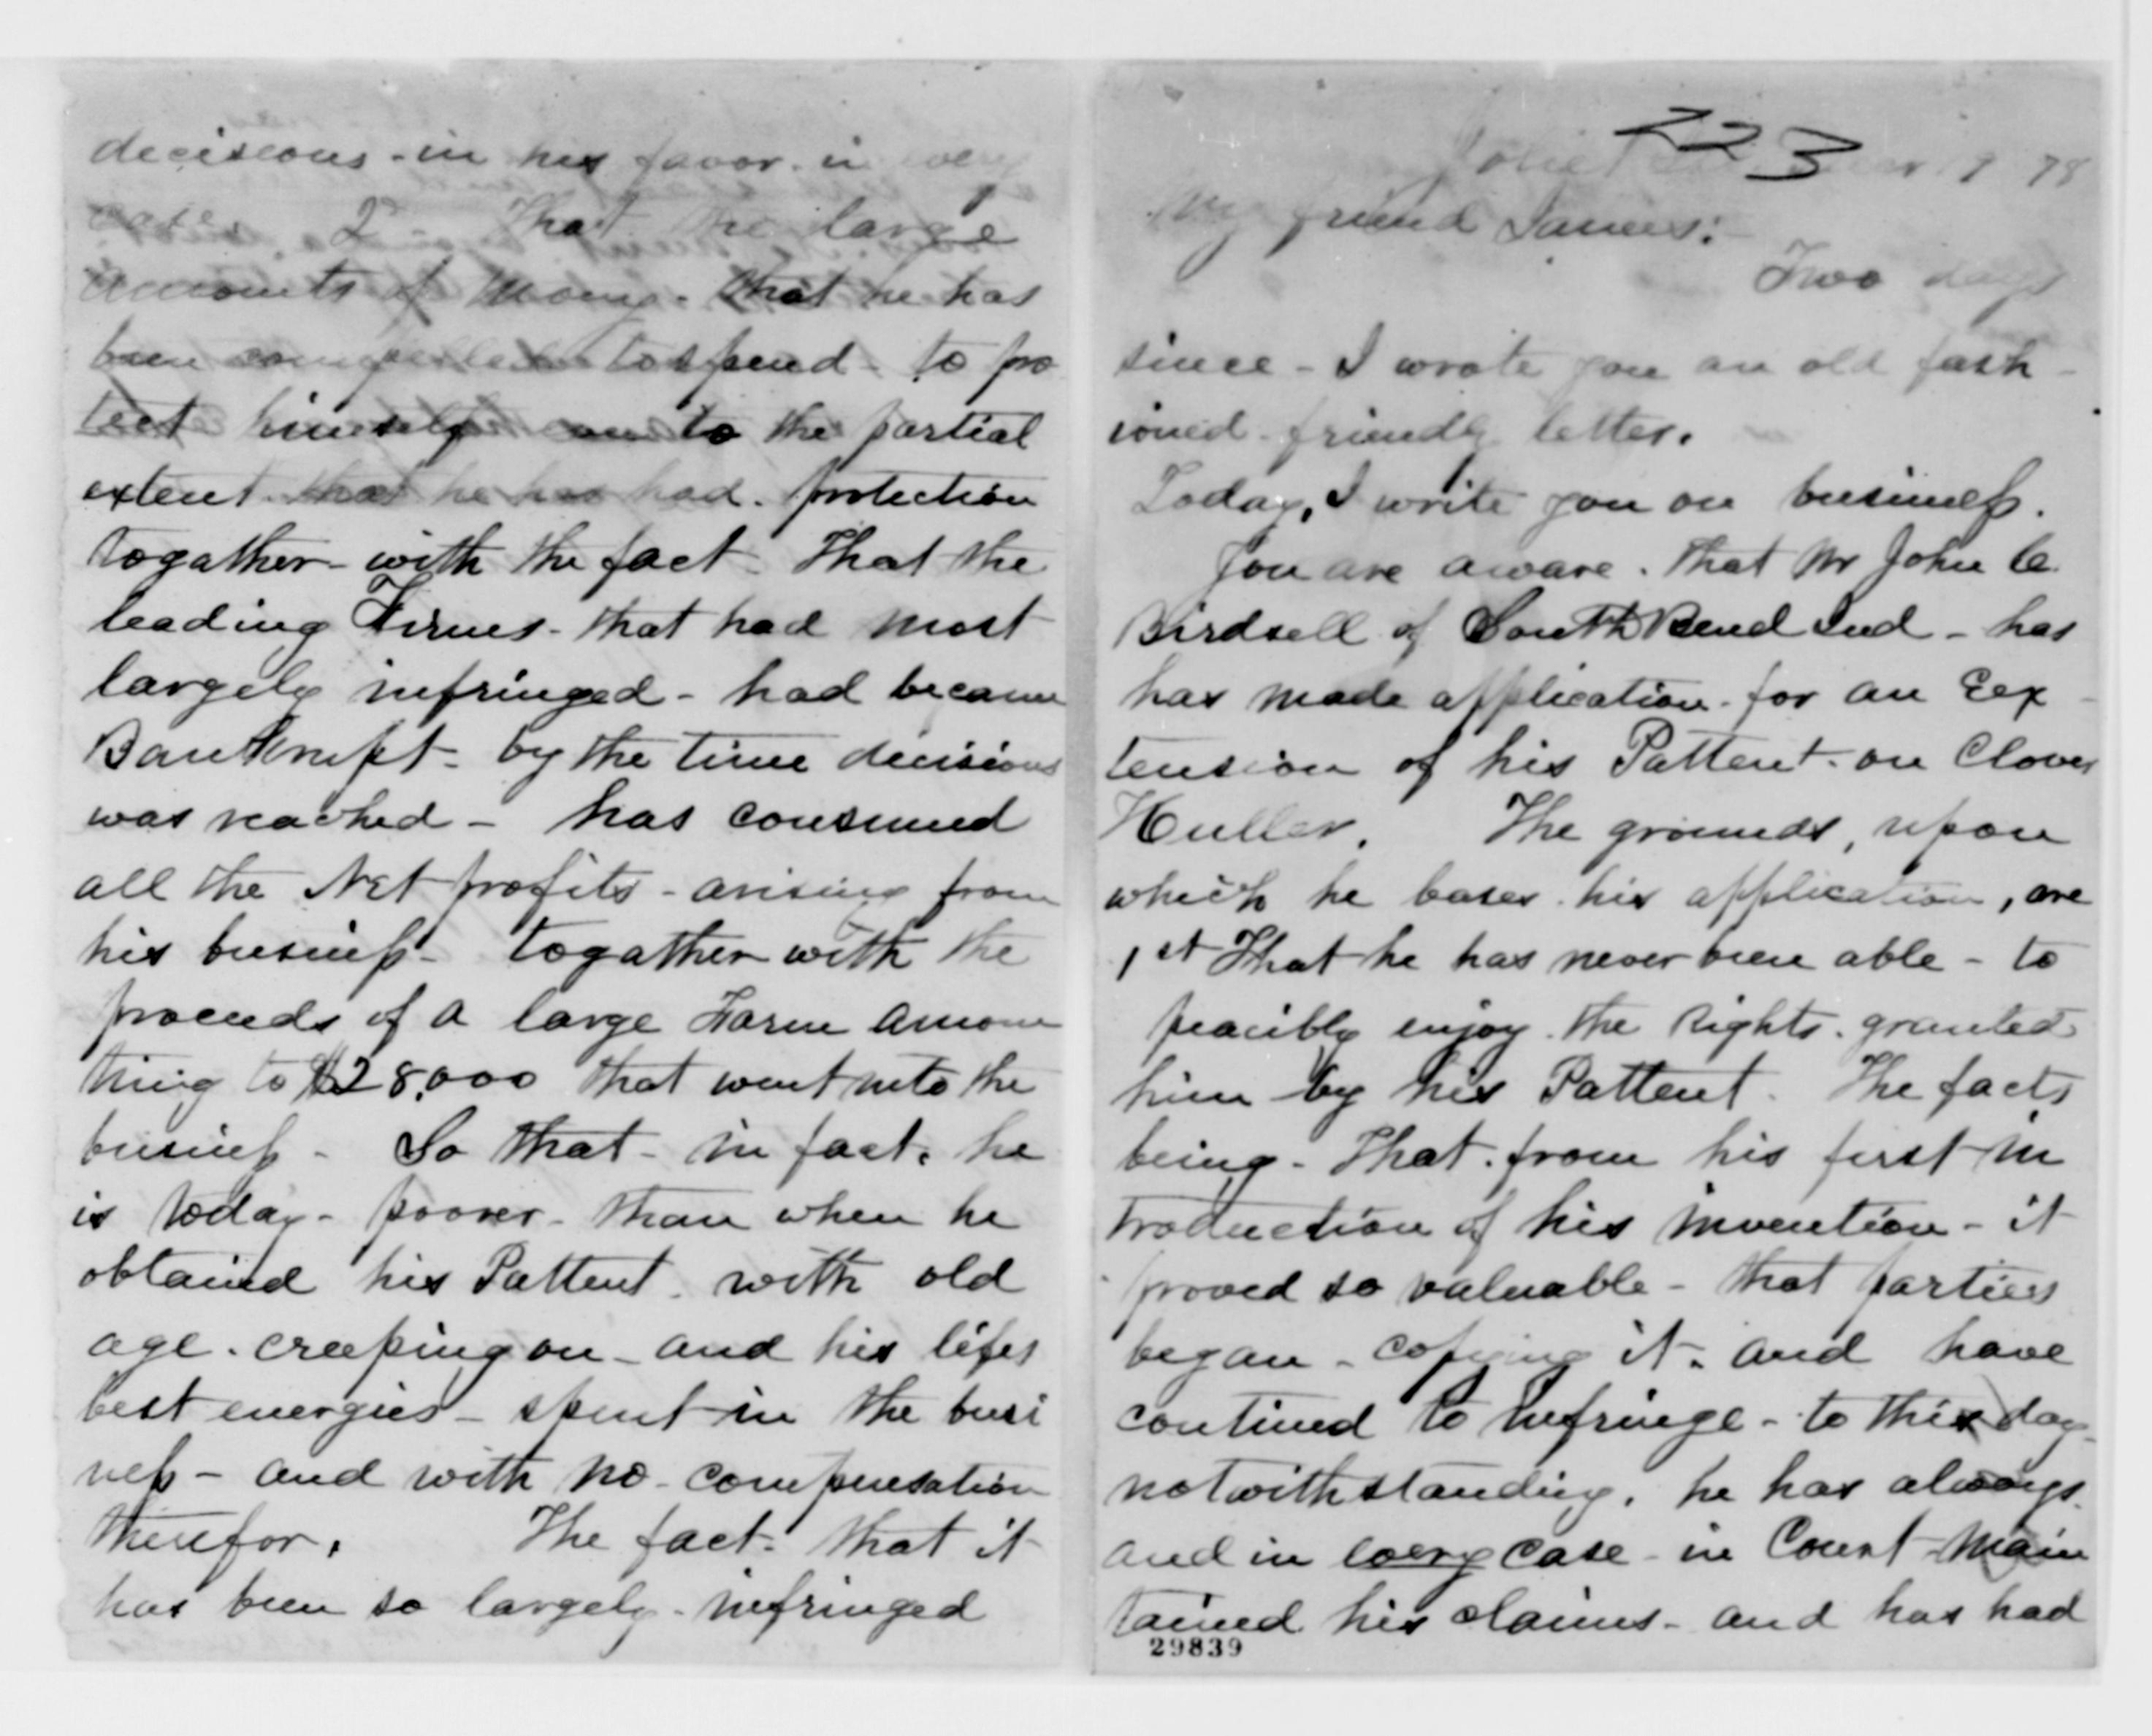 223
Joliet 9 78
My friend James:
Two days
since - I wrote you an old fash
ioned friendly letter.
Today, I write you on business.
You are aware. that Mr John C.
Birdsell of South Bend Ind - has
has made application for an Eex
tension of his Pattent on Clover
Huller. The grounds, upon
which he bases his application, are
1st That he has never been able - to
peacibly enjoy the Rights granted
him by his Pattent. The facts
being - That from his first in
troduction of his invention - it
proved so valuable - that parties
began - copying it. and have
contined to infringe - to this day
notwithstanding, he has always
and in every case - in Court main
tained his claims - and has had
29839
decisions - in his favor in every
case. 2 - That the large
amounts of Money. that he has
been compelled to spend - to pro
tect himself to the partial
extent that he has had. protection
togather - with the fact - That the
leading Firmes - that had most
largely infringed - had became
Bankrupt - by the time decisions
was reached - has consumed
all the Net profits - arising from
his business - togather with the
proceeds of a large Farm amoun
ting to $28,000 that went into the
business - So that - in fact, he
is today - poorer - than when he
obtained his Pattent. with old
age. creeping on - and his lifes
best energies - spent in the busi
ness - and with no - compensation
therefor. The fact - that it
has been so largely - infringed